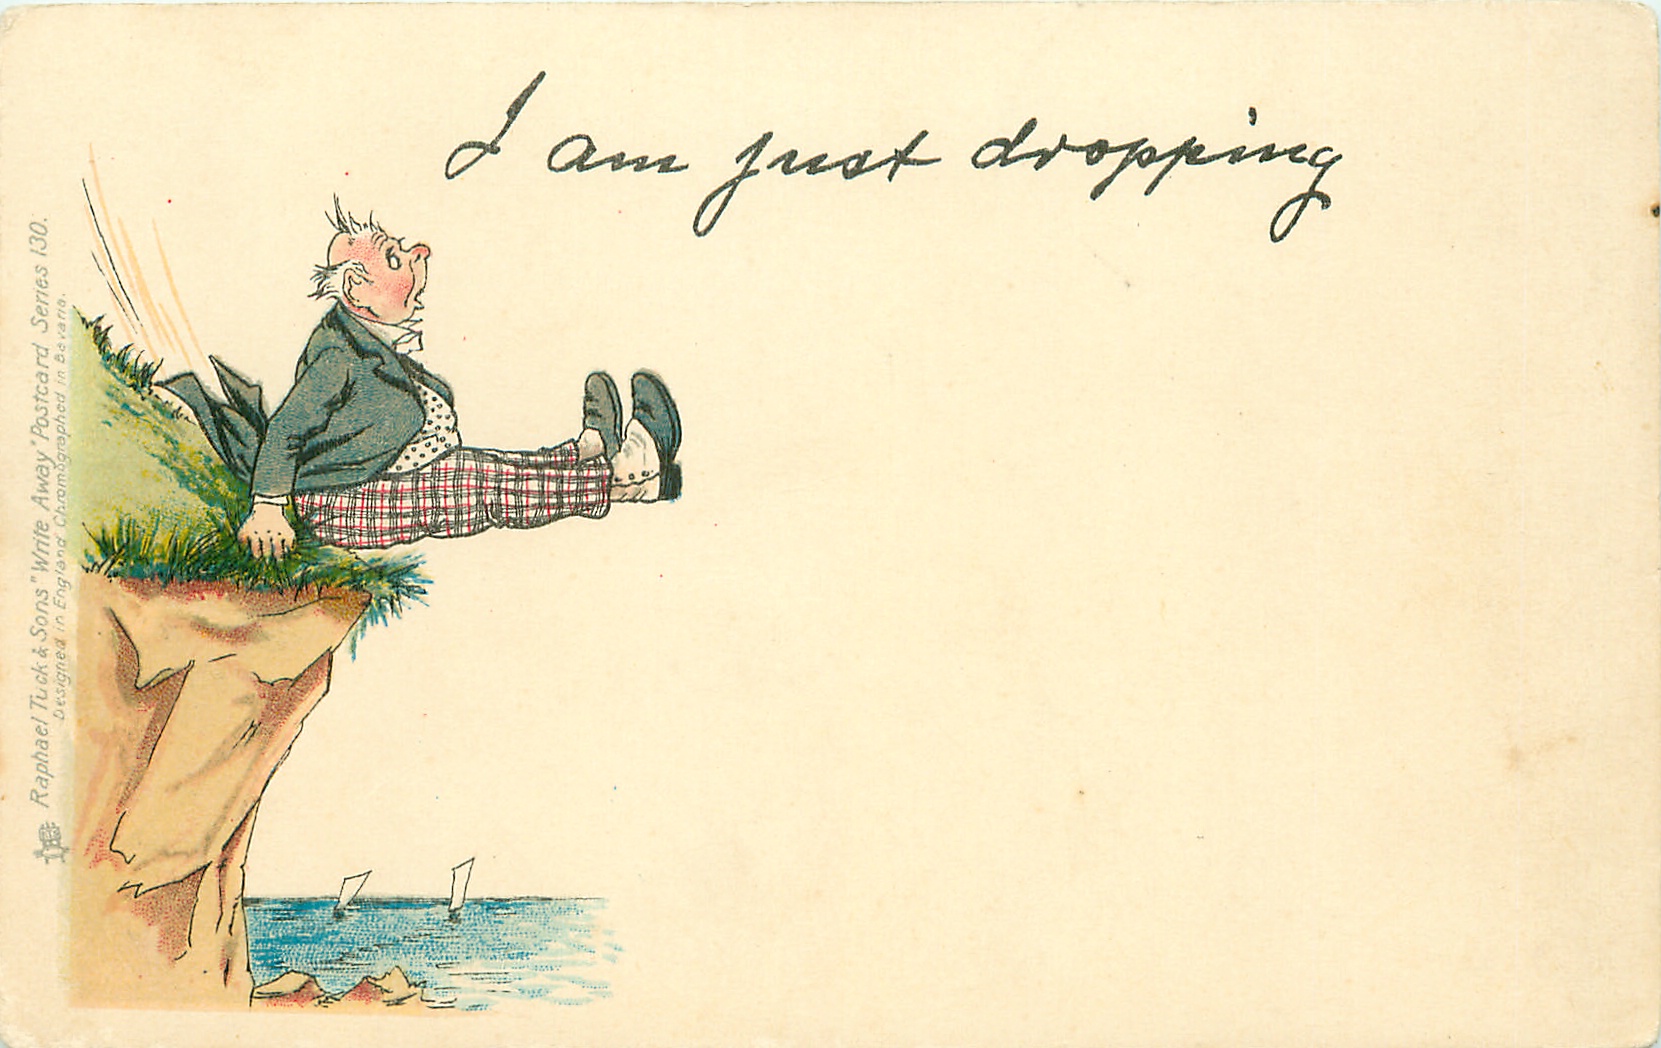 I am just dropping
Raphael Tuck & Sons "Write Away" Postcard Series 130.
Designed in England Chromographed in Bavaria.